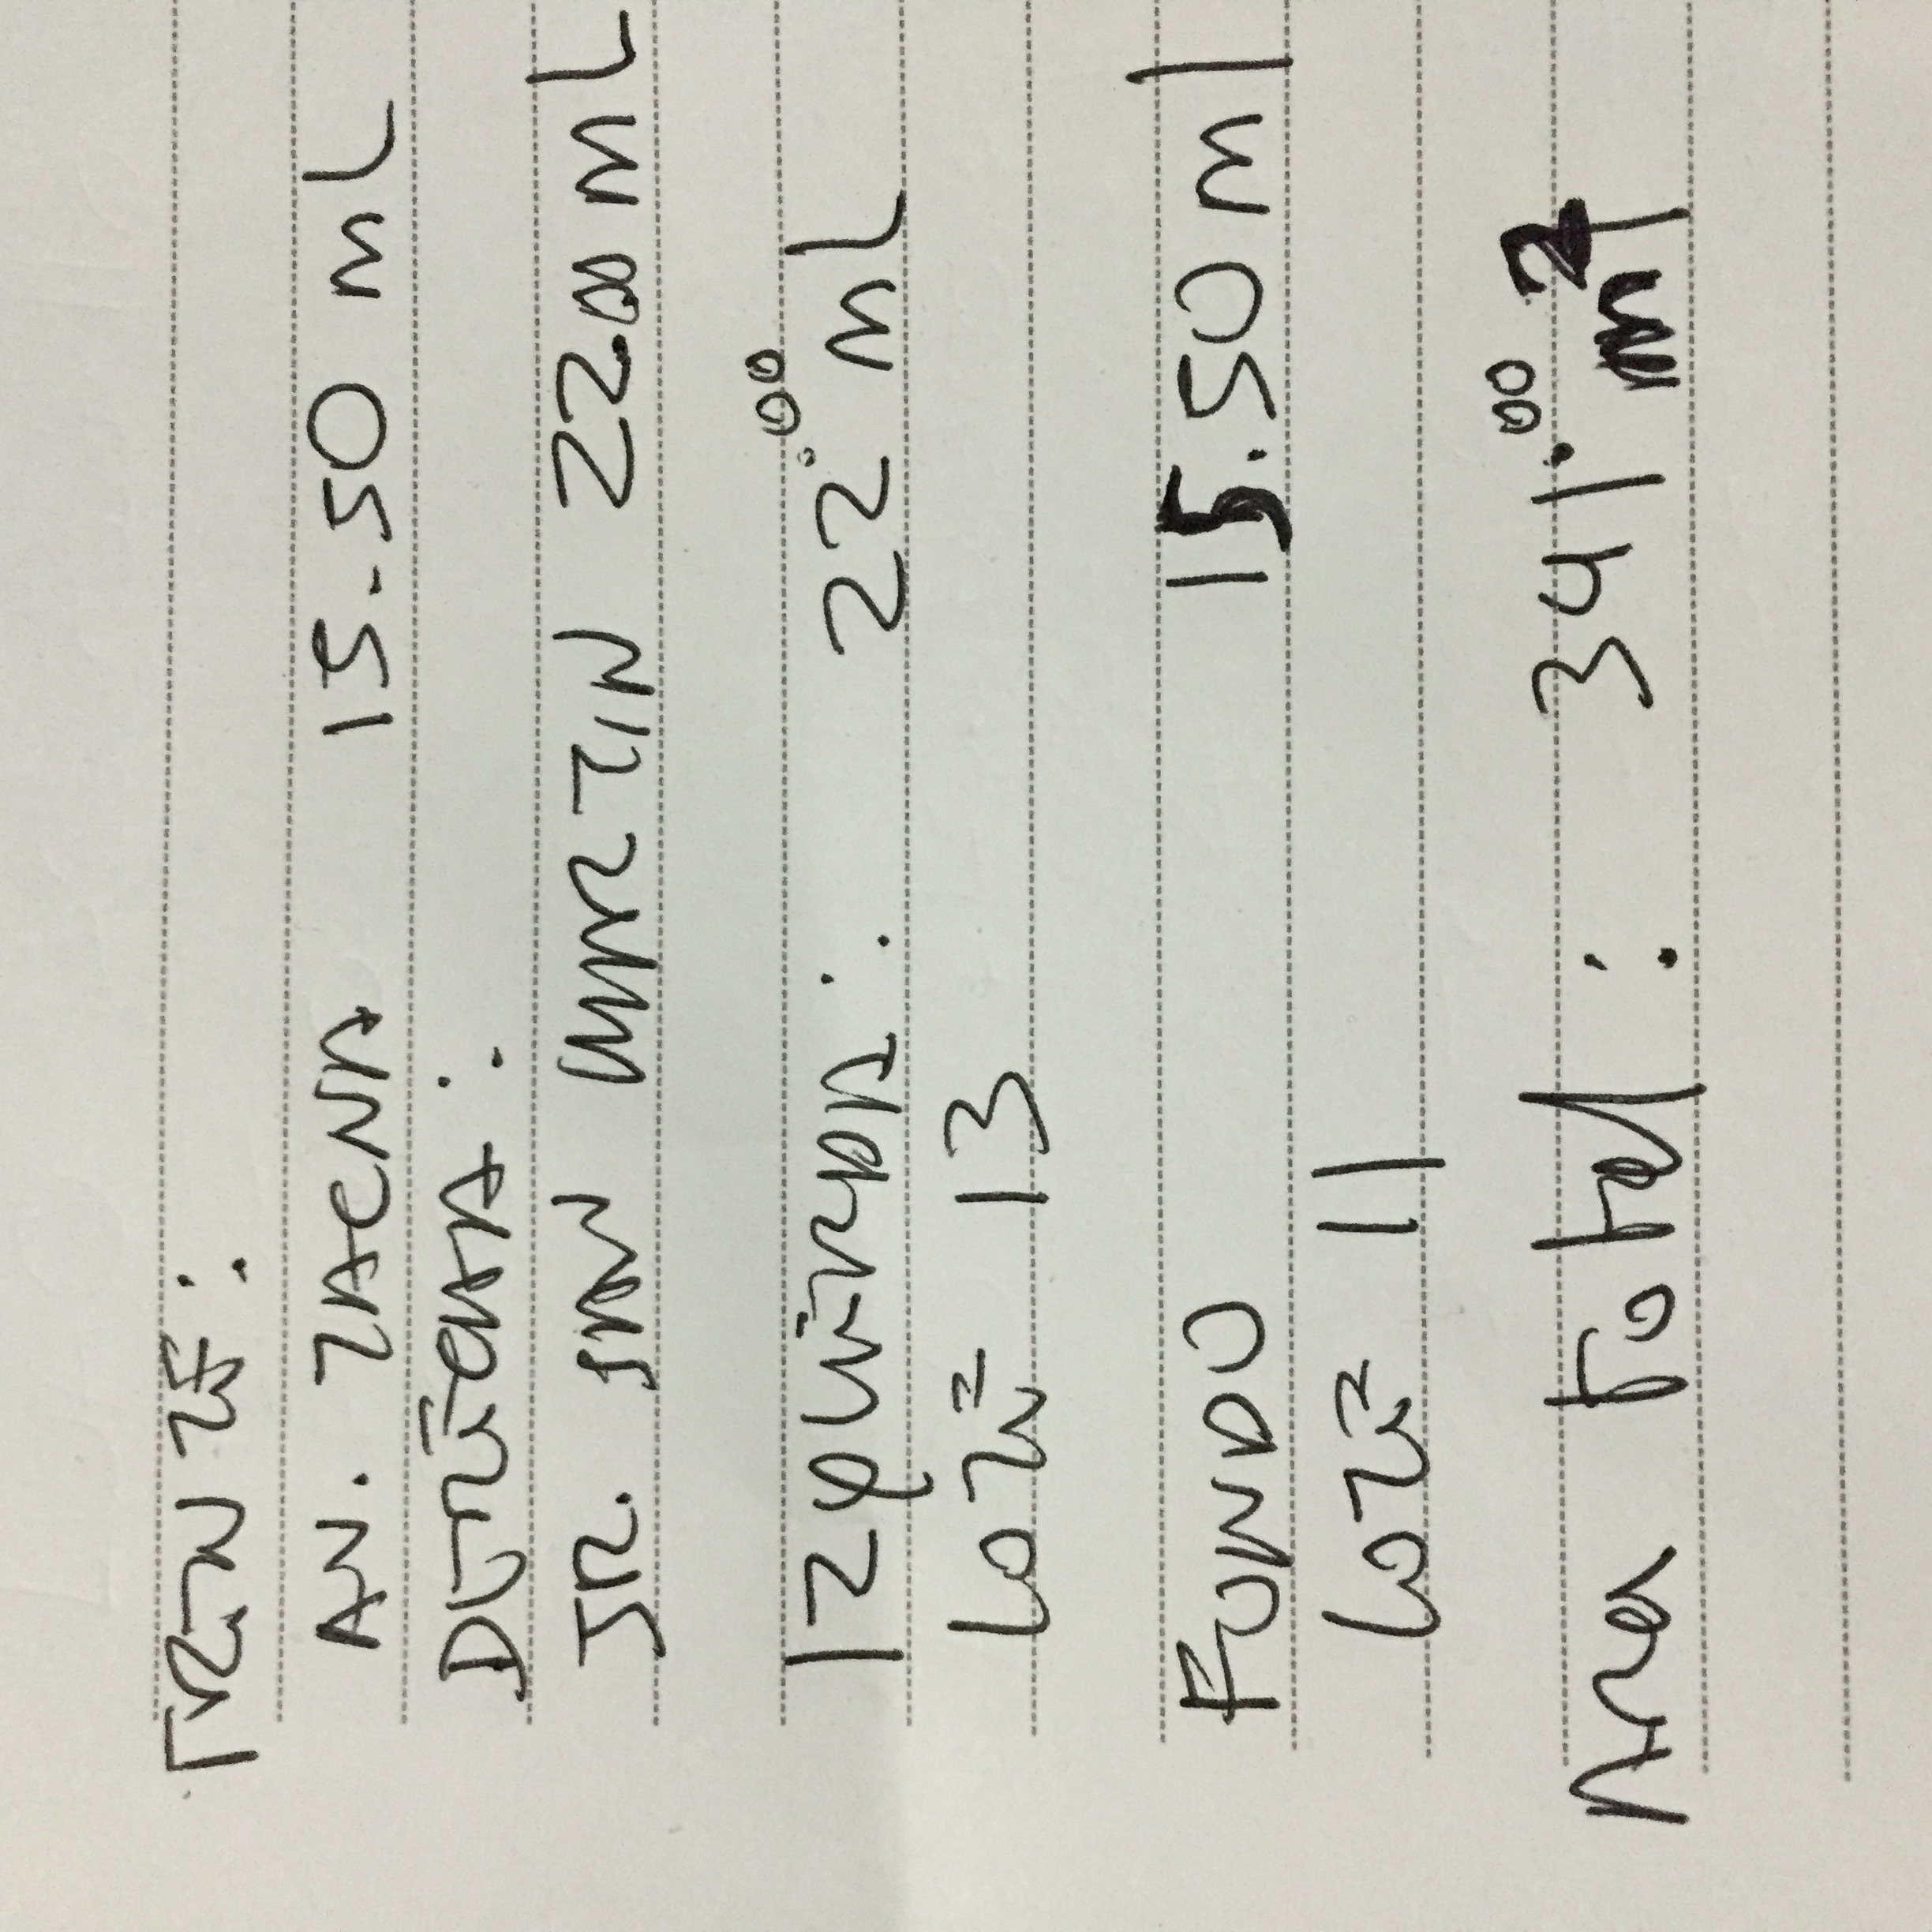 FRENTE:
AV. TACNA 15.50 ML
DERECHA:
JR. SAN MARTIN 22.00 ML
IZQUIERDA: 22.00 ML
LOTE 13
FONDO 15.50 ml
LOTE 11
Area total: 341.00 m2